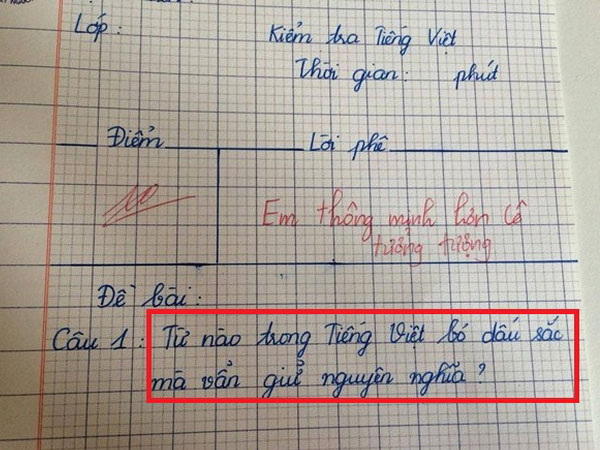 Lớp: Kiểm tra Tiếng Việt
Thời gian: phút
Điểm Lời phê
10 Em thông minh hơn Cô
tưởng tượng
Đề bài:
Câu 1: Từ nào trong Tiếng Việt bỏ dấu sắc
mà vẫn giữ nguyên nghĩa?